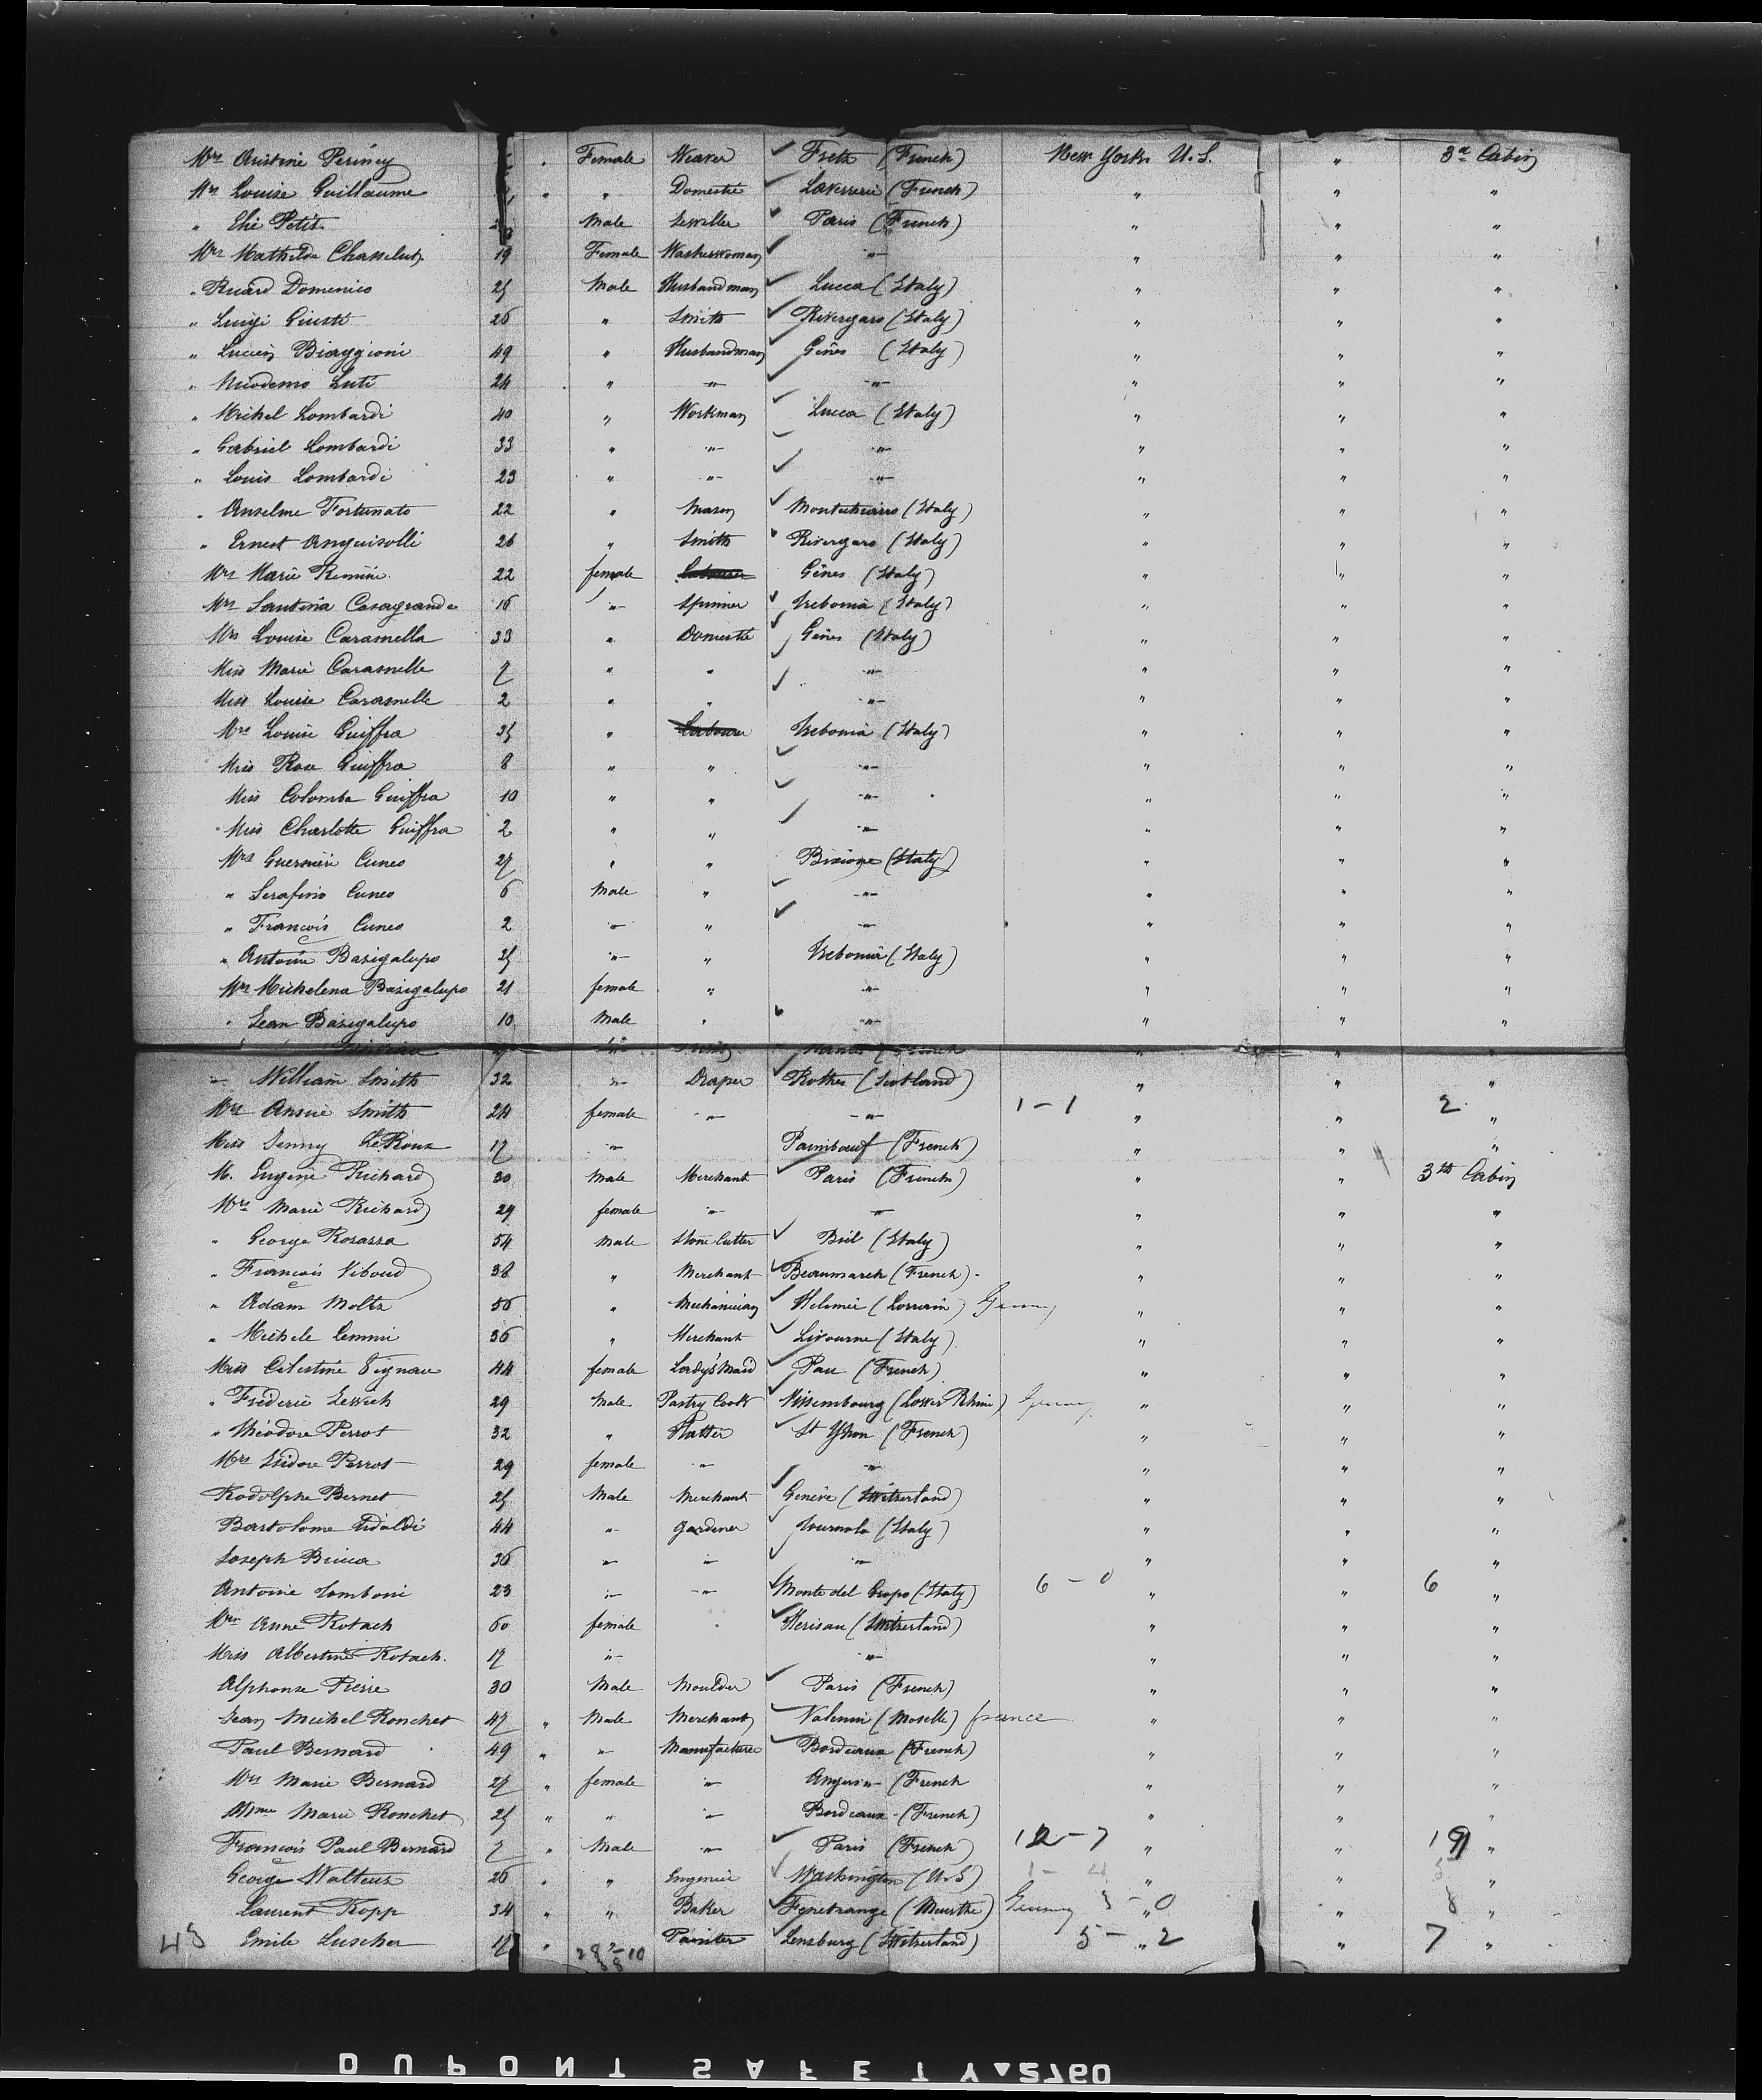 Mrs Aristine Periney " Female Weaver ✓ Freth (French) New York U.S. " 3d Cabin
Mrs Louise Guillaume " " Domestic ✓ Laverrerie (French) " " "
" Elie Petit Male Jeweller ✓ Paris (French) " " "
Mrs Mathilde Chasselut 19 Female Washerwoman ✓ -"- " " "
" Ricard Domenico 25 Male Husbandman ✓ Lucca (Italy) " " "
" Luigi Giusti 26 " Smith ✓ Rivergaro (Italy) " " "
" Lucien Biaggioni 49 " Husbandman ✓ Gênes (Italy) " " "
" Nicodemo Luti 24 " -"- ✓ -"- " " "
" Michel Lombardi 40 " Workman ✓ Lucca (Italy) " " "
" Gabriel Lombardi 33 " -"- ✓ -"- " " "
" Louis Lombardi 23 " -"- ✓ -"- " " "
" Anselme Fortunato 22 " Mason ✓ (Italy) " " "
" Ernest Anguisolli 26 " Smith ✓ Rivergaro (Italy) " " "
Mrs Marie Remini 22 female Labourer Gênes (Italy) " " "
Mrs Santina Casagrande 16 -"- Spinner ✓ Trebonia (Italy) " " "
Mrs Louise Caramella 33 " Domestic ✓ Gênes (Italy) " " "
Miss Marie Caramelle 7 " " ✓ -"- " " "
Miss Louise Caramelle 2 " " ✓ -"- " " "
Mrs Louise Guiffra 35 " Labourer Trebonia (Italy) " " "
Miss Rose Guiffra 8 " " ✓ -"- " " "
Miss Colomba Guiffra 10 " " ✓ -"- " " "
Miss Charlotte Guiffra 2 " " ✓ -"- " " "
Mrs Cuneo 27 " " (Italy) " " "
" Serafino Cuneo 6 Male " ✓ -"- " " "
" François Cuneo 2 -"- " ✓ -"- " " "
" Antoine Basigalupo 25 -"- " Trebonia (Italy) " " "
Mrs Michelena Basigalupo 21 female " -"- " " "
" Jean Basigalupo 10 Male " ✓ -"- " " "
-"- William Smith 32 -"- Draper ✓ Rothes (Scotland) " " "
Mrs Annie Smith 24 female -"- -"- 1-1 " " 2 "
Miss Jenny Le Roux 17 -"- Paimboeuf (French) " " "
M. Eugène Richard 30 Male Merchant ✓ Paris (French) " " 3th Cabin
Mrs Marie Richard 29 female -"- -"- " " "
" George Rosazza 54 Male Stone Cutter ✓ Biel (Italy) " " "
" François Viboud 38 " Merchant ✓ Beaumarch (French) " " "
" Adam Moltz 56 " Mechanician ✓ (Lorrain) Germany " " "
" Michele Cemmi 36 " Merchant ✓ Livourne (Italy) " " "
Miss Celestine Vignau 44 female Lady's Maid ✓ Pau (French) " " "
" Fréderic Lewich 29 Male Pastry Cook ✓ Wissembourg (Lower Rhine) Germany " " "
" Théodore Perrot 32 " Hatter ✓ St Yhon (French) " " "
Mrs Isidore Perrot 29 female -"- -"- " " "
Rodolphe Bernet 25 Male Merchant ✓ Genève (Switzerland) " " "
Bartolome Vidaldi 44 -"- Gardener ✓ (Italy) " " "
Joseph Bricca 36 -"- -"- ✓ -"- " " "
Antoine Tomboni 23 -"- -"- ✓ Monte del Gropo (Italy) 6-0 " " 6 "
Mrs Anne Rotach 60 female " ✓ Herisau (Switzerland) " " "
Miss Albertine Rotach. 17 -"- -"- " " "
Alphonse Pierre 30 Male Moulder ✓ Paris (French) " " "
Jean Michel Ronchet 47 " Male Merchant ✓ (Moselle) france " " "
Paul Bernard 49 " -"- Manufacturer ✓ Bordeaux (French) " " "
Mrs Marie Bernard 27 " female -"- (French " " "
Mme Marie Ronchet 25 " " -"- Bordeaux (French) " " "
François Paul Bernard 7 " Male -"- ✓ Paris (French) 12-7 " " 19 "
George Walteus 26 " " Engenier ✓ Washington (U.S) 1-4 " " 5 "
Laurent Kopp 34 " " Baker ✓ Fenetrange (Meurthe) Germany 8-0 " " 8 "
45 Emile Luscher 17 " Painter ✓ Lenzburg (Switzerland) 5-2 " " 7 "
DUPONT SAFETY 2760